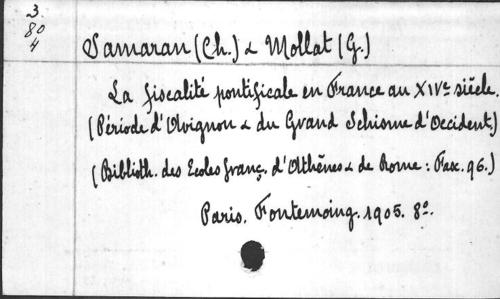 3
80
4
Samaran (Ch.) & Mollat (G.)
La fiscalité pontificale en France au XIVe siècle.
(Période d'Avignon & du Grand Schisme d'Occident)
(Biblioth. des Ecoles franç. d'Athènes & de Rome : Fax. 96.)
Paris. Fontemoing. 1905. 8o.